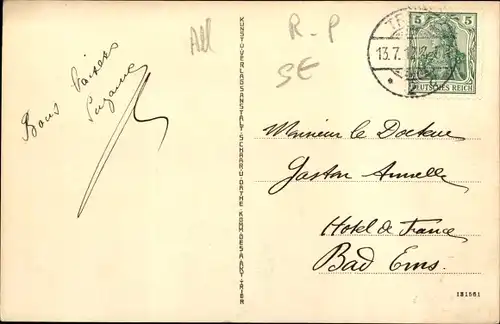 All
R-P
SE
Bons baisers
Suzanne
5 5
13.7.1
DEUTSCHES REICH
KUNST U. VERLAGSANSTALT SCHAAR U. DATHE KOMM. GES. A. AKT. TRIER
Monsieur le Docteur
Gaston
Hotel de France
Bad Ems.
131561